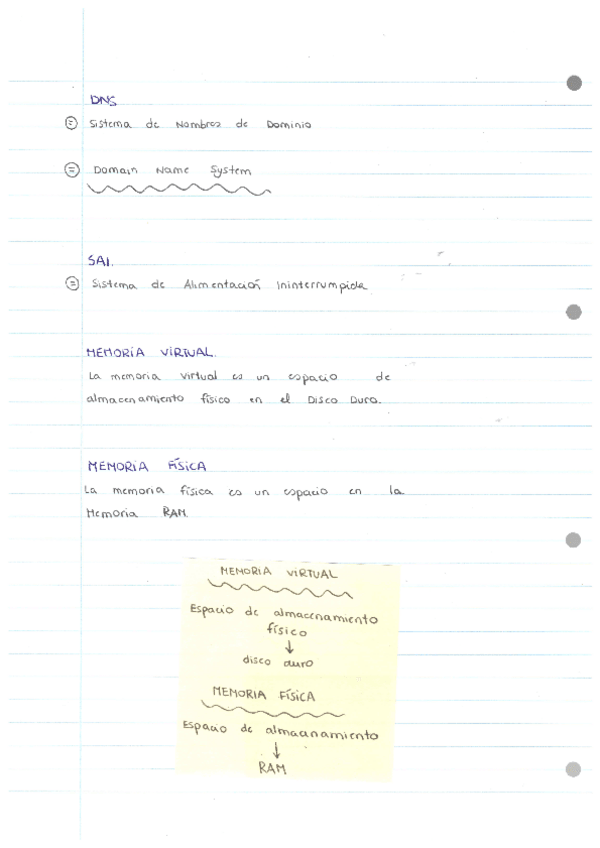 DNS
= Sistema de Nombres de Dominio
= Domain Name System
SAI.
= Sistema de Alimentación Ininterrumpida
MEMORIA VIRTUAL.
La memoria virtual es un espacio de
almacenamiento físico en el Disco Duro.
MEMORIA FÍSICA
La memoria física es un espacio en la
Memoria RAM
MEMORIA VIRTUAL
Espacio de almacenamiento
físico
↓
disco duro
MEMORIA FÍSICA
Espacio de almacenamiento
↓
RAM